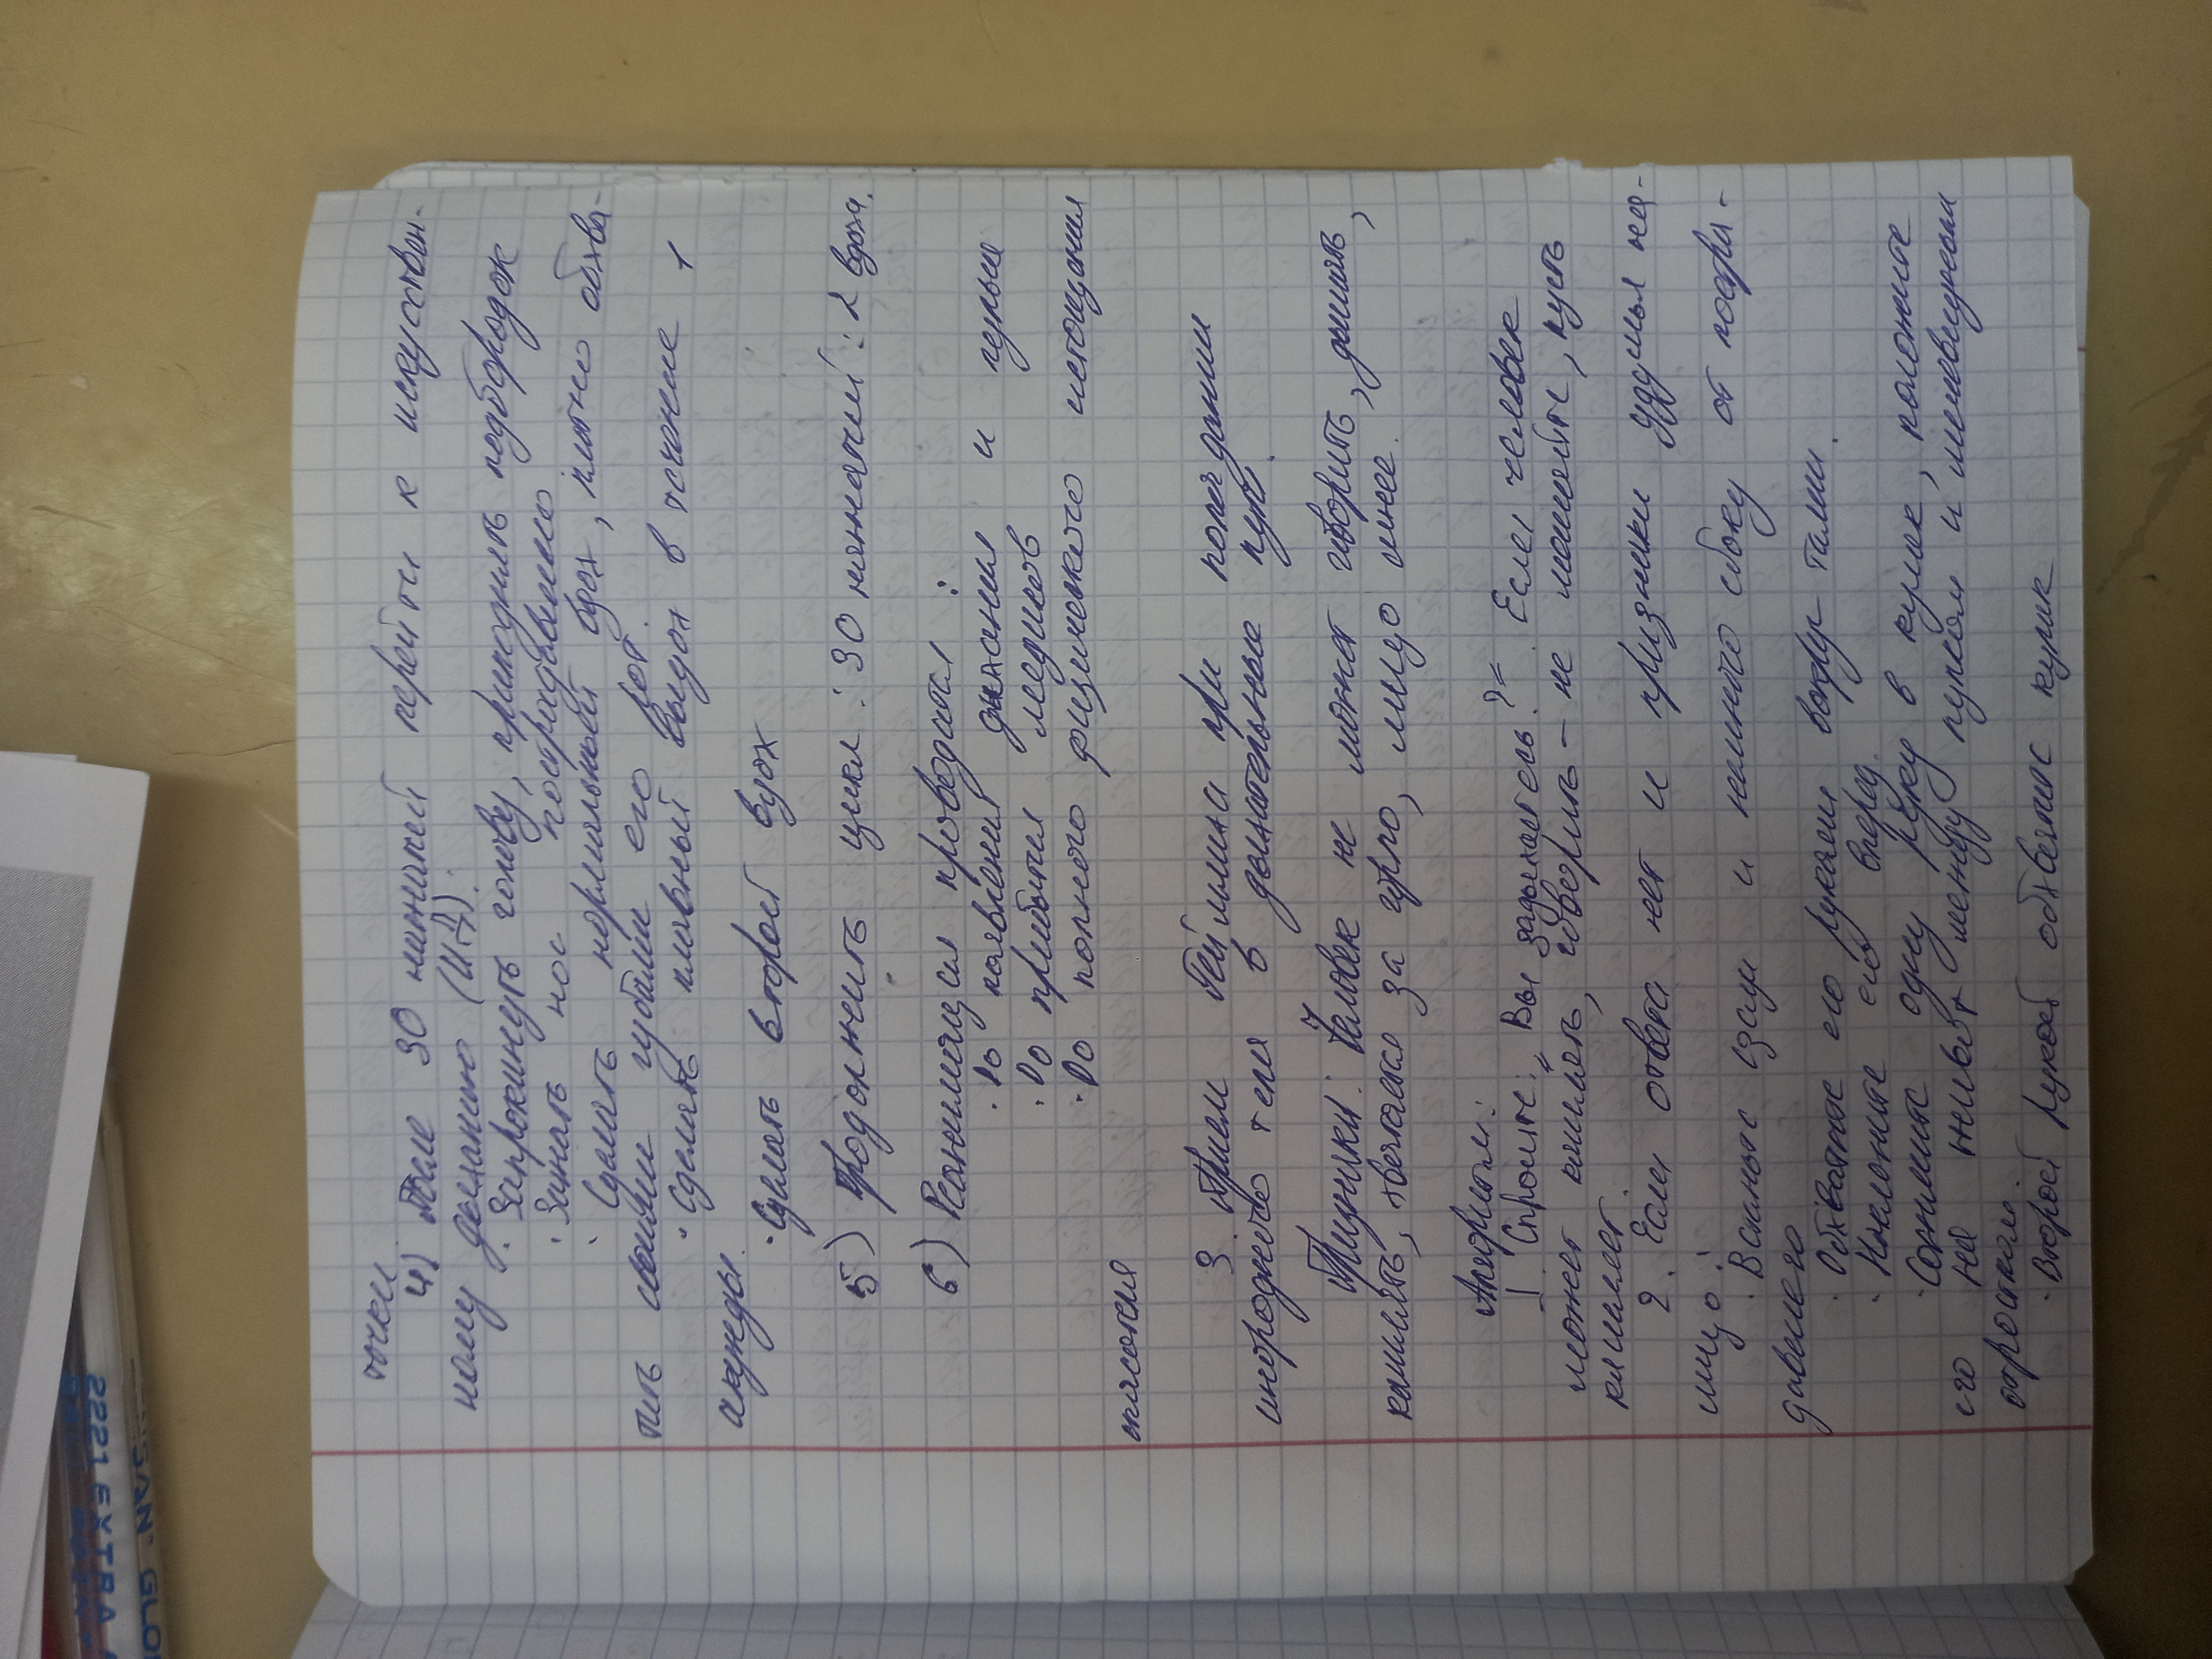 точки
4) После 30 нажатий перейти к искуствен-
ному дыханию (ИД).
· Запрокинуть голову, приподнять подбородок
· Зажать нос пострадавшего
· Сделать нормальный вдох, плотно обхва-
тить своими губами его рот.
· Сделать плавный выдох в течение 1
секунды.
· Сделать второй вдох
5) Продолжить цикл: 30 нажатий: 2 вдоха.
6) Реанимация проводится:
· До появления дыхания и пульса
· До прибытия медиков
· До полного физического истощения
3. Прием Геймлиха при попадании
инородного тела в дыхательные пути.
Признаки: Человек не может говорить, дышать,
кашлять, хватается за горло, лицо синее.
Алгоритм:
1. Спросите: „Вы задыхаетесь?" Если человек
может кашлять, говорить - не мешайте, пусть
кашляет.
2. Если ответа нет и признаки удушья на-
лицо:
· Встаньте сзади и немного сбоку от постра-
давшего
· Обхватите его руками вокруг талии.
· Наклоните его вперед.
· Сожмите одну руку в кулак, положите
его на живот между пупком и мечевидным
отростком.
· Второй рукой обхватите кулак
2221 EXTRA
GLO